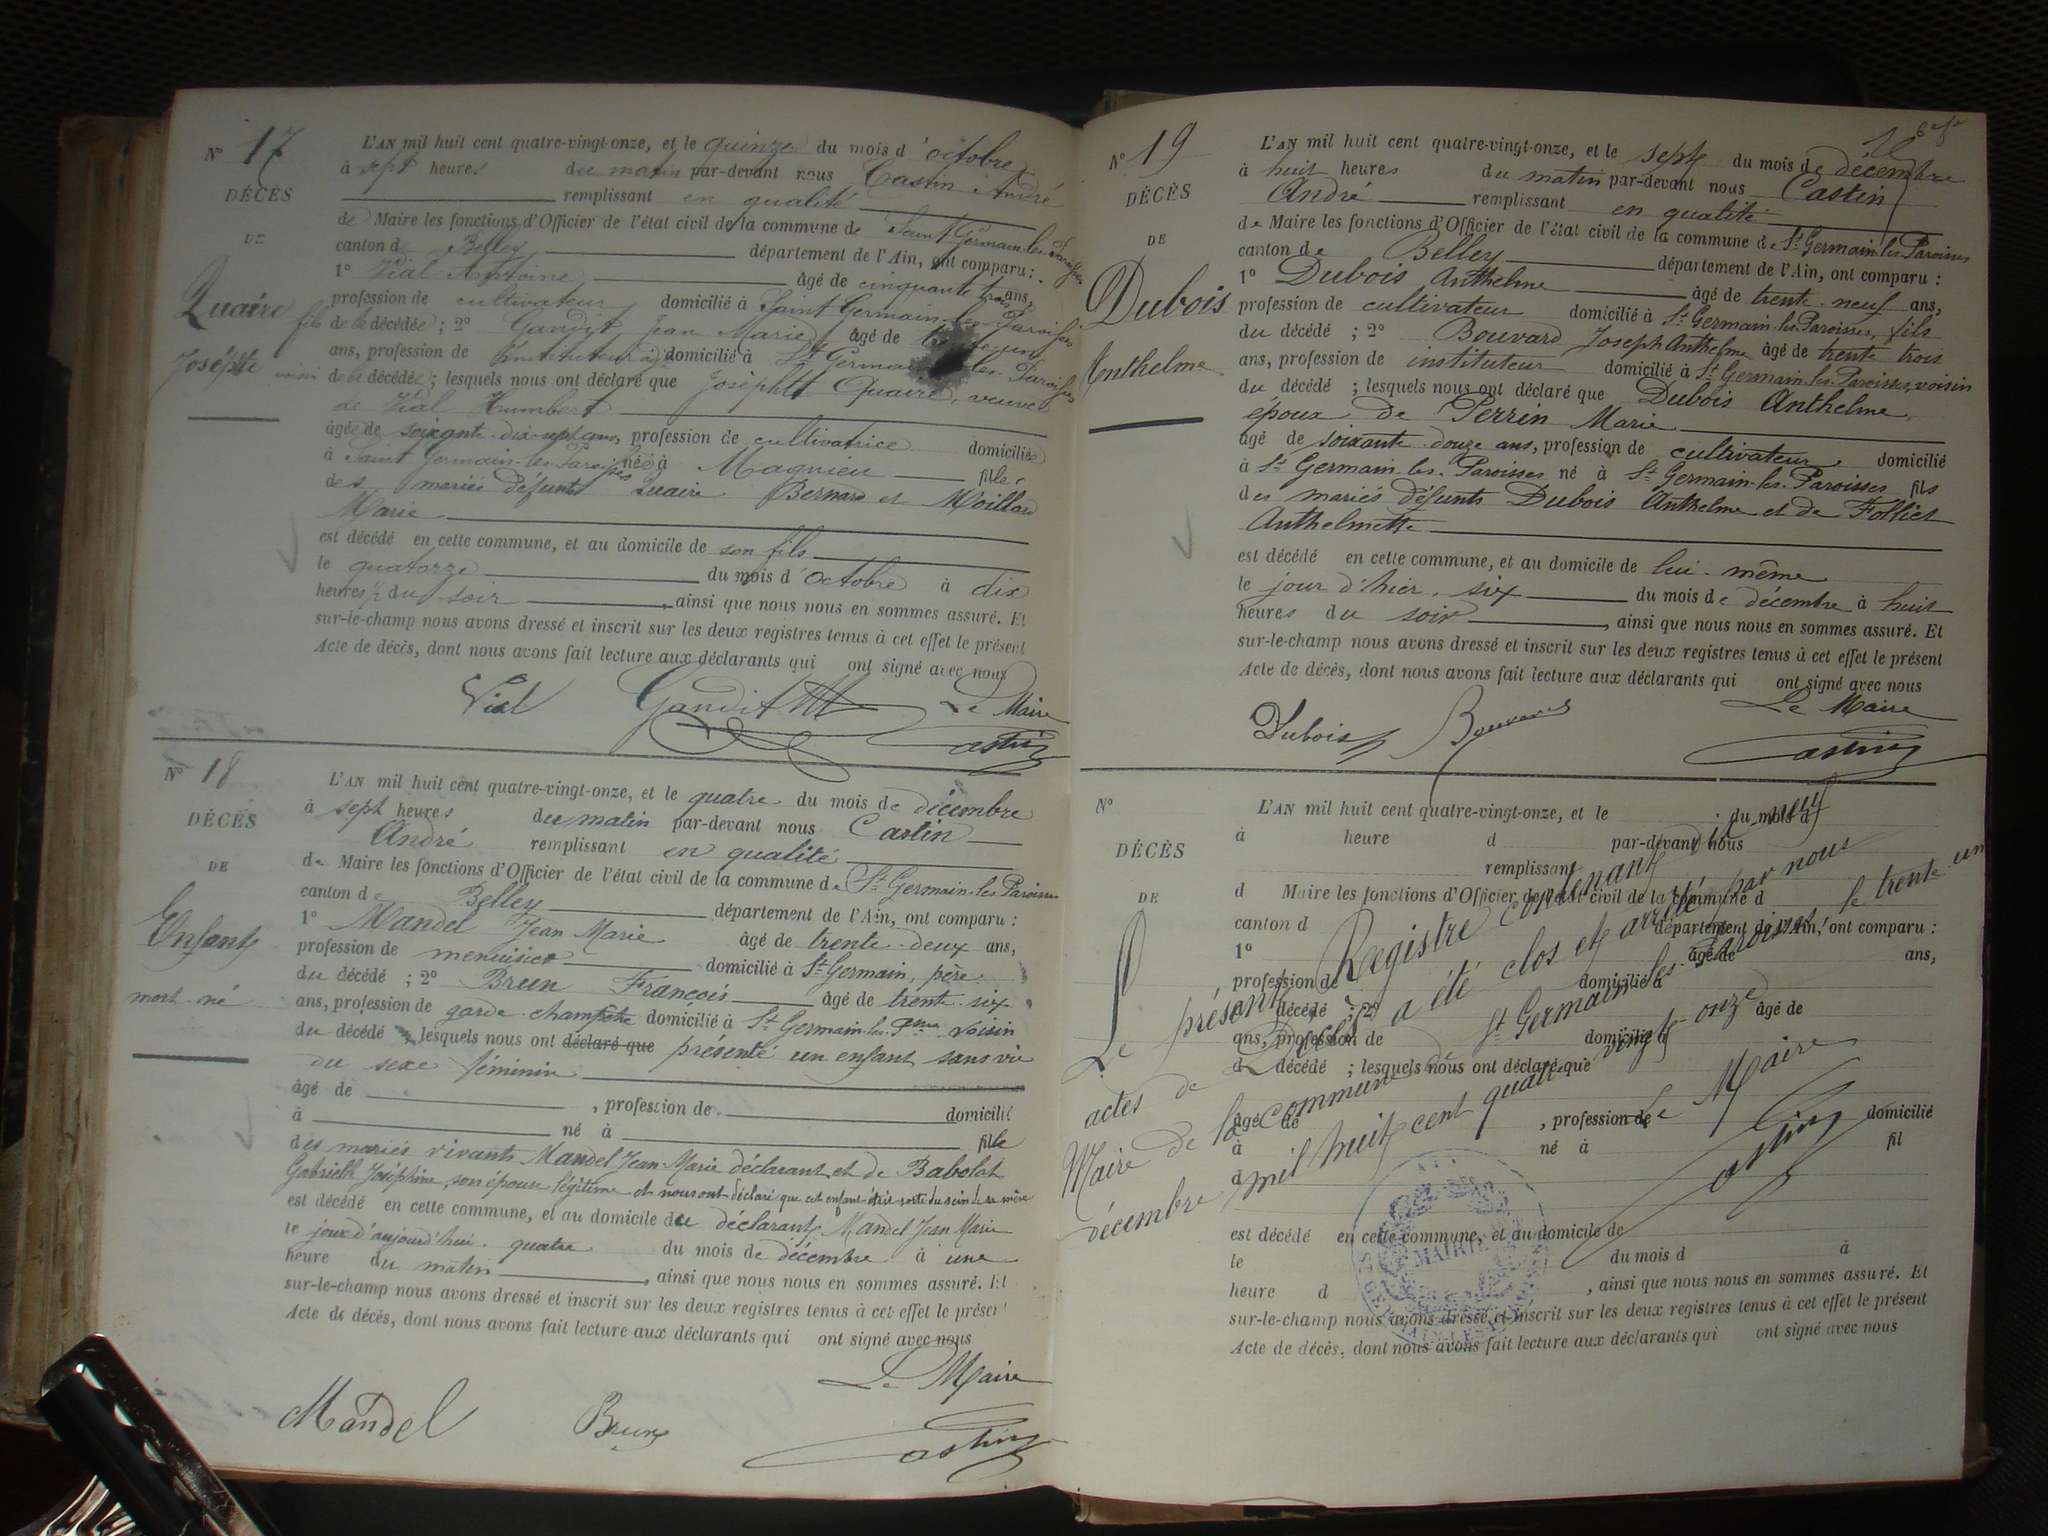 N° 17
DÉCÈS
DE
Quaire
Josephte
L'AN mil huit cent quatre-vingt-onze, et le quinze du mois d'octobre
à sept heures du matin par-devant nous Castin André
remplissant en qualité
de Maire les fonctions d'Officier de l'état civil de la commune de Saint Germain-les-Paroisses
canton de Belley département de l'Ain, ont comparu :
1° Vial Antoine âgé de cinquante trois ans,
profession de cultivateur domicilié à Saint Germain-les-Paroisses
fils de la décédée ; 2° Gandit Jean Marie âgé de
ans, profession de instituteur domicilié à St Germain-les-Paroisses
voisin de la décédée ; lesquels nous ont déclaré que Josephte Quaire, veuve
de Vial Humbert
âgée de soixante-dix-sept ans, profession de cultivatrice domiciliée
à Saint Germain-les-Paroisses née à Magnieu fille
des mariés défunts Quaire Bernard et Moillard
Marie
est décédé en cette commune, et au domicile de son fils
le quatorze du mois d'octobre à dix
heures ½ du soir, ainsi que nous nous en sommes assuré. Et
sur-le-champ nous avons dressé et inscrit sur les deux registres tenus à cet effet le présent
Acte de décès, dont nous avons fait lecture aux déclarants qui ont signé avec nous
Vial Gandit Le Maire
Castin
N° 18
DÉCÈS
DE
Enfant
mort-né
L'AN mil huit cent quatre-vingt-onze, et le quatre du mois de décembre
à sept heures du matin par-devant nous Castin
André remplissant en qualité
de Maire les fonctions d'Officier de l'état civil de la commune de St Germain-les-Paroisses
canton de Belley département de l'Ain, ont comparu :
1° Mandel Jean Marie âgé de trente-deux ans,
profession de menuisier domicilié à St Germain, père
du décédé ; 2° Brun François âgé de trente-six
ans, profession de garde-champêtre domicilié à St Germain-les-Pses voisin
du décédé lesquels nous ont déclaré que présenté un enfant sans vie
du sexe féminin
âgé de , profession de domicilié
à né à
des mariés vivants Mandel Jean Marie déclarant et de Babolat fille
Gabrielle Joséphine, son épouse légitime et nous ont déclaré que cet enfant était sorti du sein de sa mère
est décédé en cette commune, et au domicile du déclarant, Mandel Jean Marie
le jour d'aujourd'hui quatre du mois de décembre à une
heure du matin, ainsi que nous nous en sommes assuré. Et
sur-le-champ nous avons dressé et inscrit sur les deux registres tenus à cet effet le présent
Acte de décès, dont nous avons fait lecture aux déclarants qui ont signé avec nous
Le Maire
Mandel Brun Castin
N° 19
DÉCÈS
DE
Dubois
Anthelme
L'AN mil huit cent quatre-vingt-onze, et le sept du mois de décembre
à huit heures du matin par-devant nous Castin
André remplissant en qualité
de Maire les fonctions d'Officier de l'état civil de la commune de St Germain-les-Paroisses
canton de Belley département de l'Ain, ont comparu :
1° Dubois Anthelme âgé de trente-neuf ans,
profession de cultivateur domicilié à St Germain-les-Paroisses, fils
du décédé ; 2° Bouvard Joseph Anthelme âgé de trente trois
ans, profession de instituteur domicilié à St Germain-les-Paroisses, voisin
du décédé ; lesquels nous ont déclaré que Dubois Anthelme,
époux de Perrin Marie
âgé de soixante-douze ans, profession de cultivateur domicilié
à St Germain-les-Paroisses né à St Germain-les-Paroisses fils
des mariés défunts Dubois Anthelme et de Folliet
Anthelmette
est décédé en cette commune, et au domicile de lui-même
le jour d'hier, six du mois de décembre à huit
heures du soir, ainsi que nous nous en sommes assuré. Et
sur-le-champ nous avons dressé et inscrit sur les deux registres tenus à cet effet le présent
Acte de décès, dont nous avons fait lecture aux déclarants qui ont signé avec nous
Le Maire
Dubois Bouvard Castin
N°
DÉCÈS
DE
L'AN mil huit cent quatre-vingt-onze, et le du mois d
à heure d par-devant nous
remplissant
d Maire les fonctions d'Officier de l'état civil de la commune d
canton d département de l'Ain, ont comparu :
1° âgé de ans,
profession de domicilié à
d décédé ; 2° âgé de
ans, profession de domicilié à
d décédé ; lesquels nous ont déclaré que
âgé de , profession de domicilié
à né à fil
d
est décédé en cette commune, et au domicile de
le du mois d à
heure d , ainsi que nous nous en sommes assuré. Et
sur-le-champ nous avons dressé et inscrit sur les deux registres tenus à cet effet le présent
Acte de décès, dont nous avons fait lecture aux déclarants qui ont signé avec nous
Le présent Registre contenant dix-neuf
actes de Décès a été clos et arrêté par nous
Maire de la commune de St Germain-les-Paroisses, le trente un
décembre mil huit cent quatre vingt-onze
Le Maire
Castin
MAIRIE